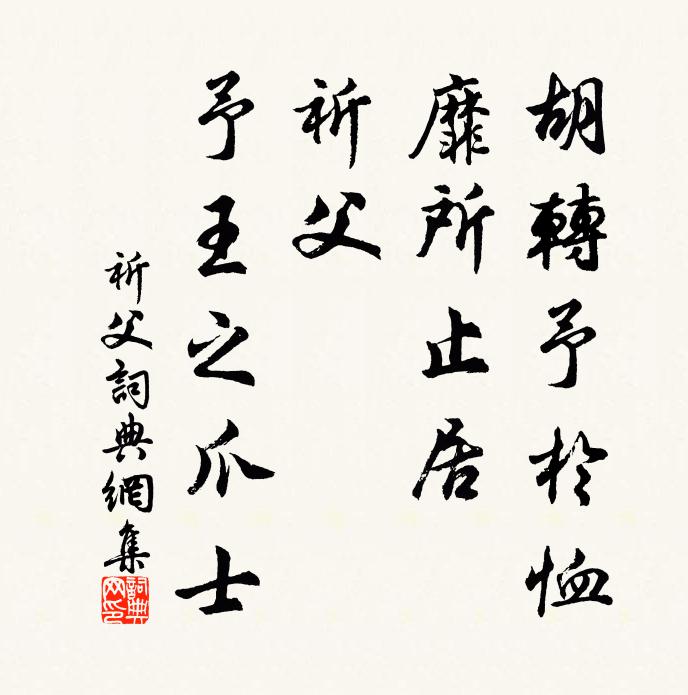 胡轉予於恤
靡所止居
祈父
予王之爪士
祈父詞典網集
詞典网印